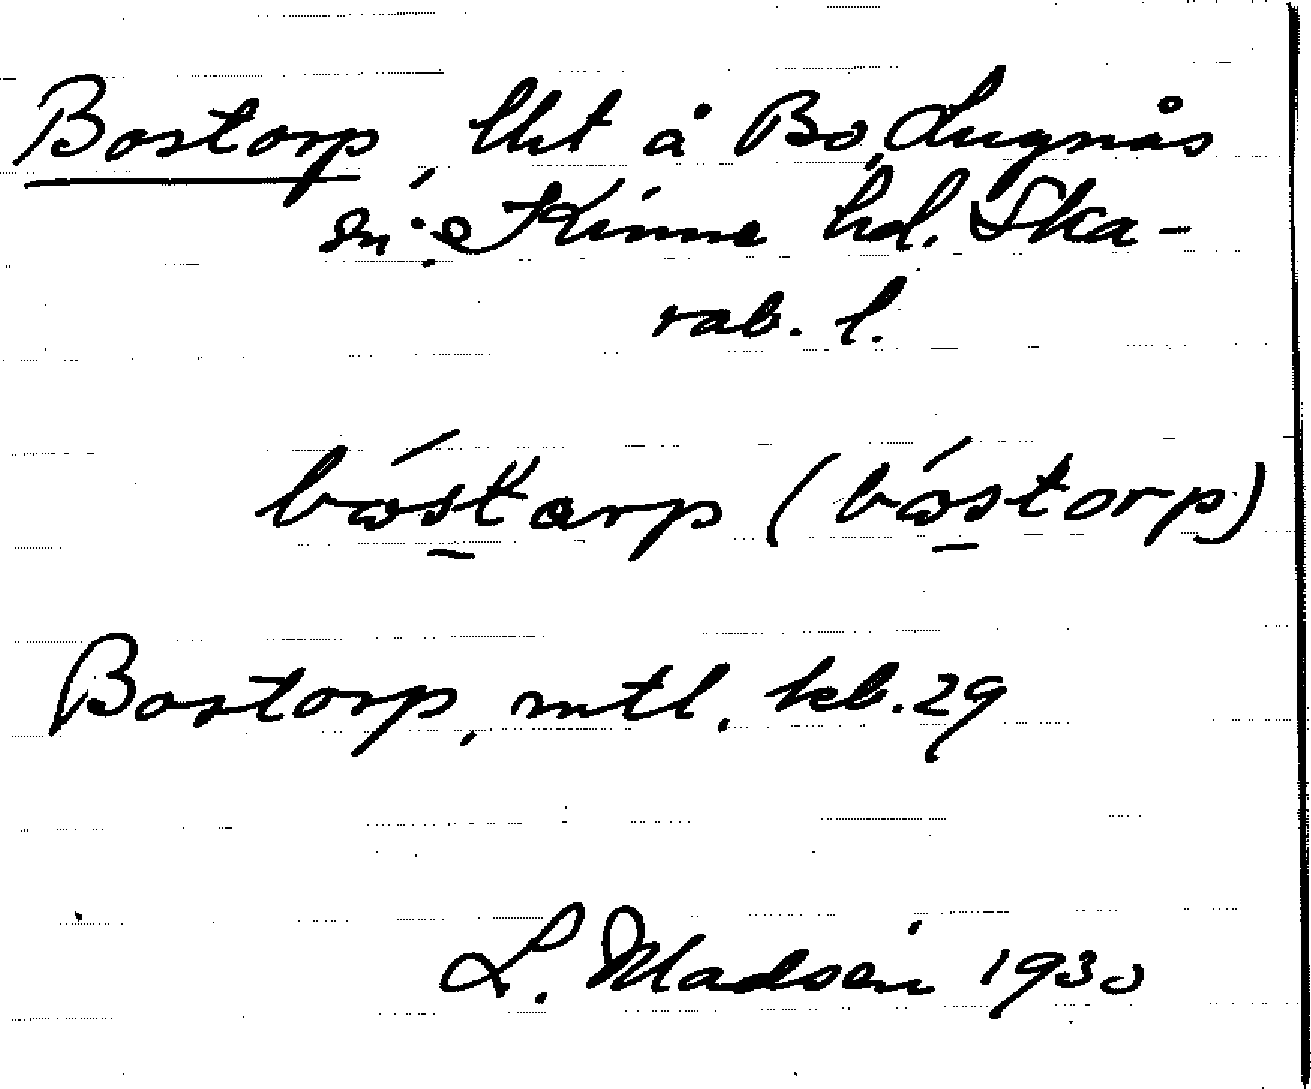 Bostorp, lht å Bo, Lugnås
sn; Kinne hd. Ska-
rab. l.
bóstarp (bóstorp)
Bostorp, mtl. kb. 29
L. Madsén 1930